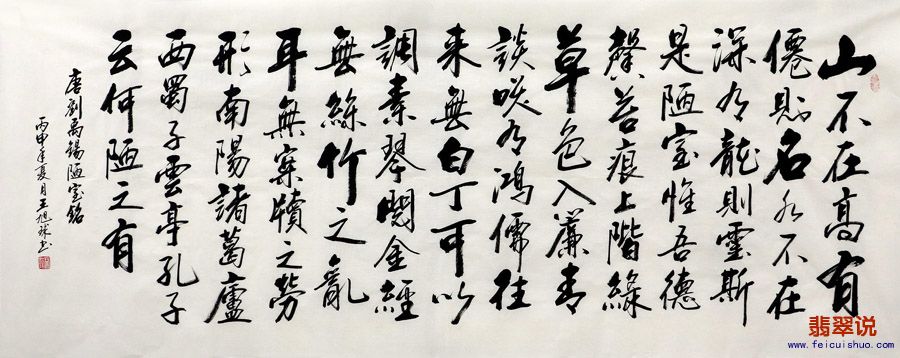 山不在高有
僊則名水不在
深有龍則靈斯
是陋室惟吾德
馨苔痕上階綠
草色入簾青
談咲有鴻儒往
来無白丁可以
調素琴閱金經
無絲竹之亂
耳無案牘之勞
形南陽諸葛廬
西蜀子雲亭孔子
云何陋之有
唐劉禹錫陋室銘
丙申年夏月王旭书
翡翠说
www.feicuishuo.com